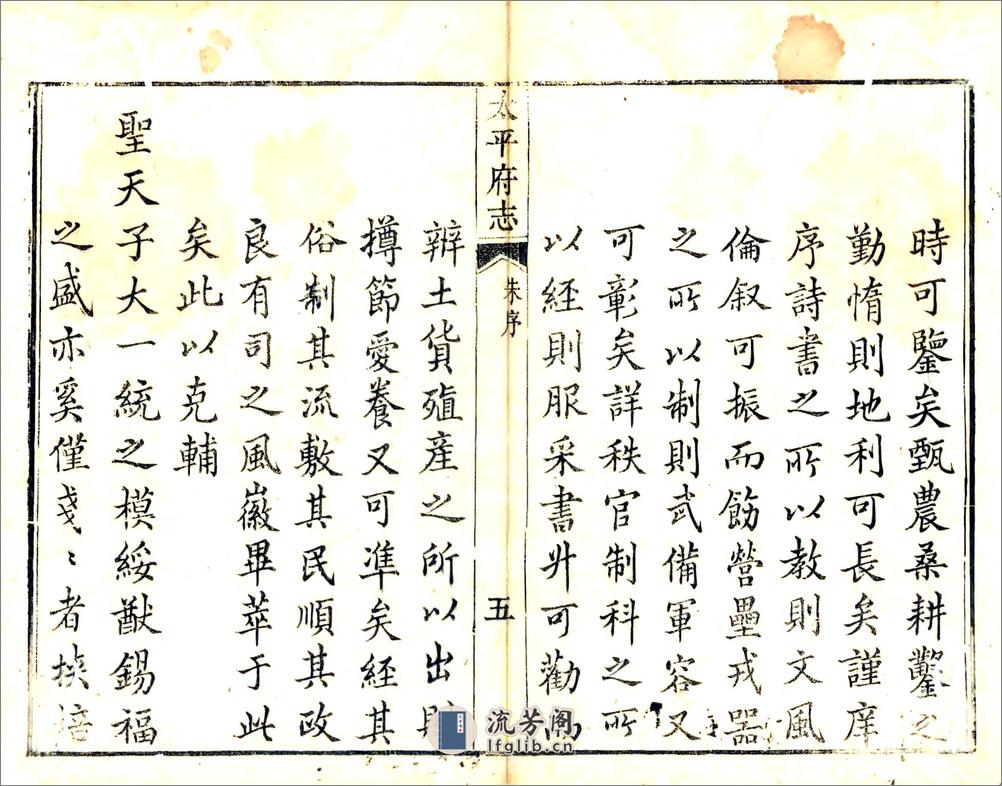 時可鑒矣甄農桑耕鑿之
勤惰則地利可長矣謹庠
序詩書之所以教則文風
倫叙可振而飭營壘戎器
之所以制則武備軍容又
可彰矣詳秩官制科之所
以經則服采書升可勸而
太平府志
朱序
五
辨土貨殖産之所以出則
撙節愛養又可準矣經其
俗制其流敷其民順其政
良有司之風徽畢萃于此
矣此以克輔
聖天子大一統之模綏猷錫福
之盛亦奚僅戔〻者挨掊
流芳阁
lfglib.cn